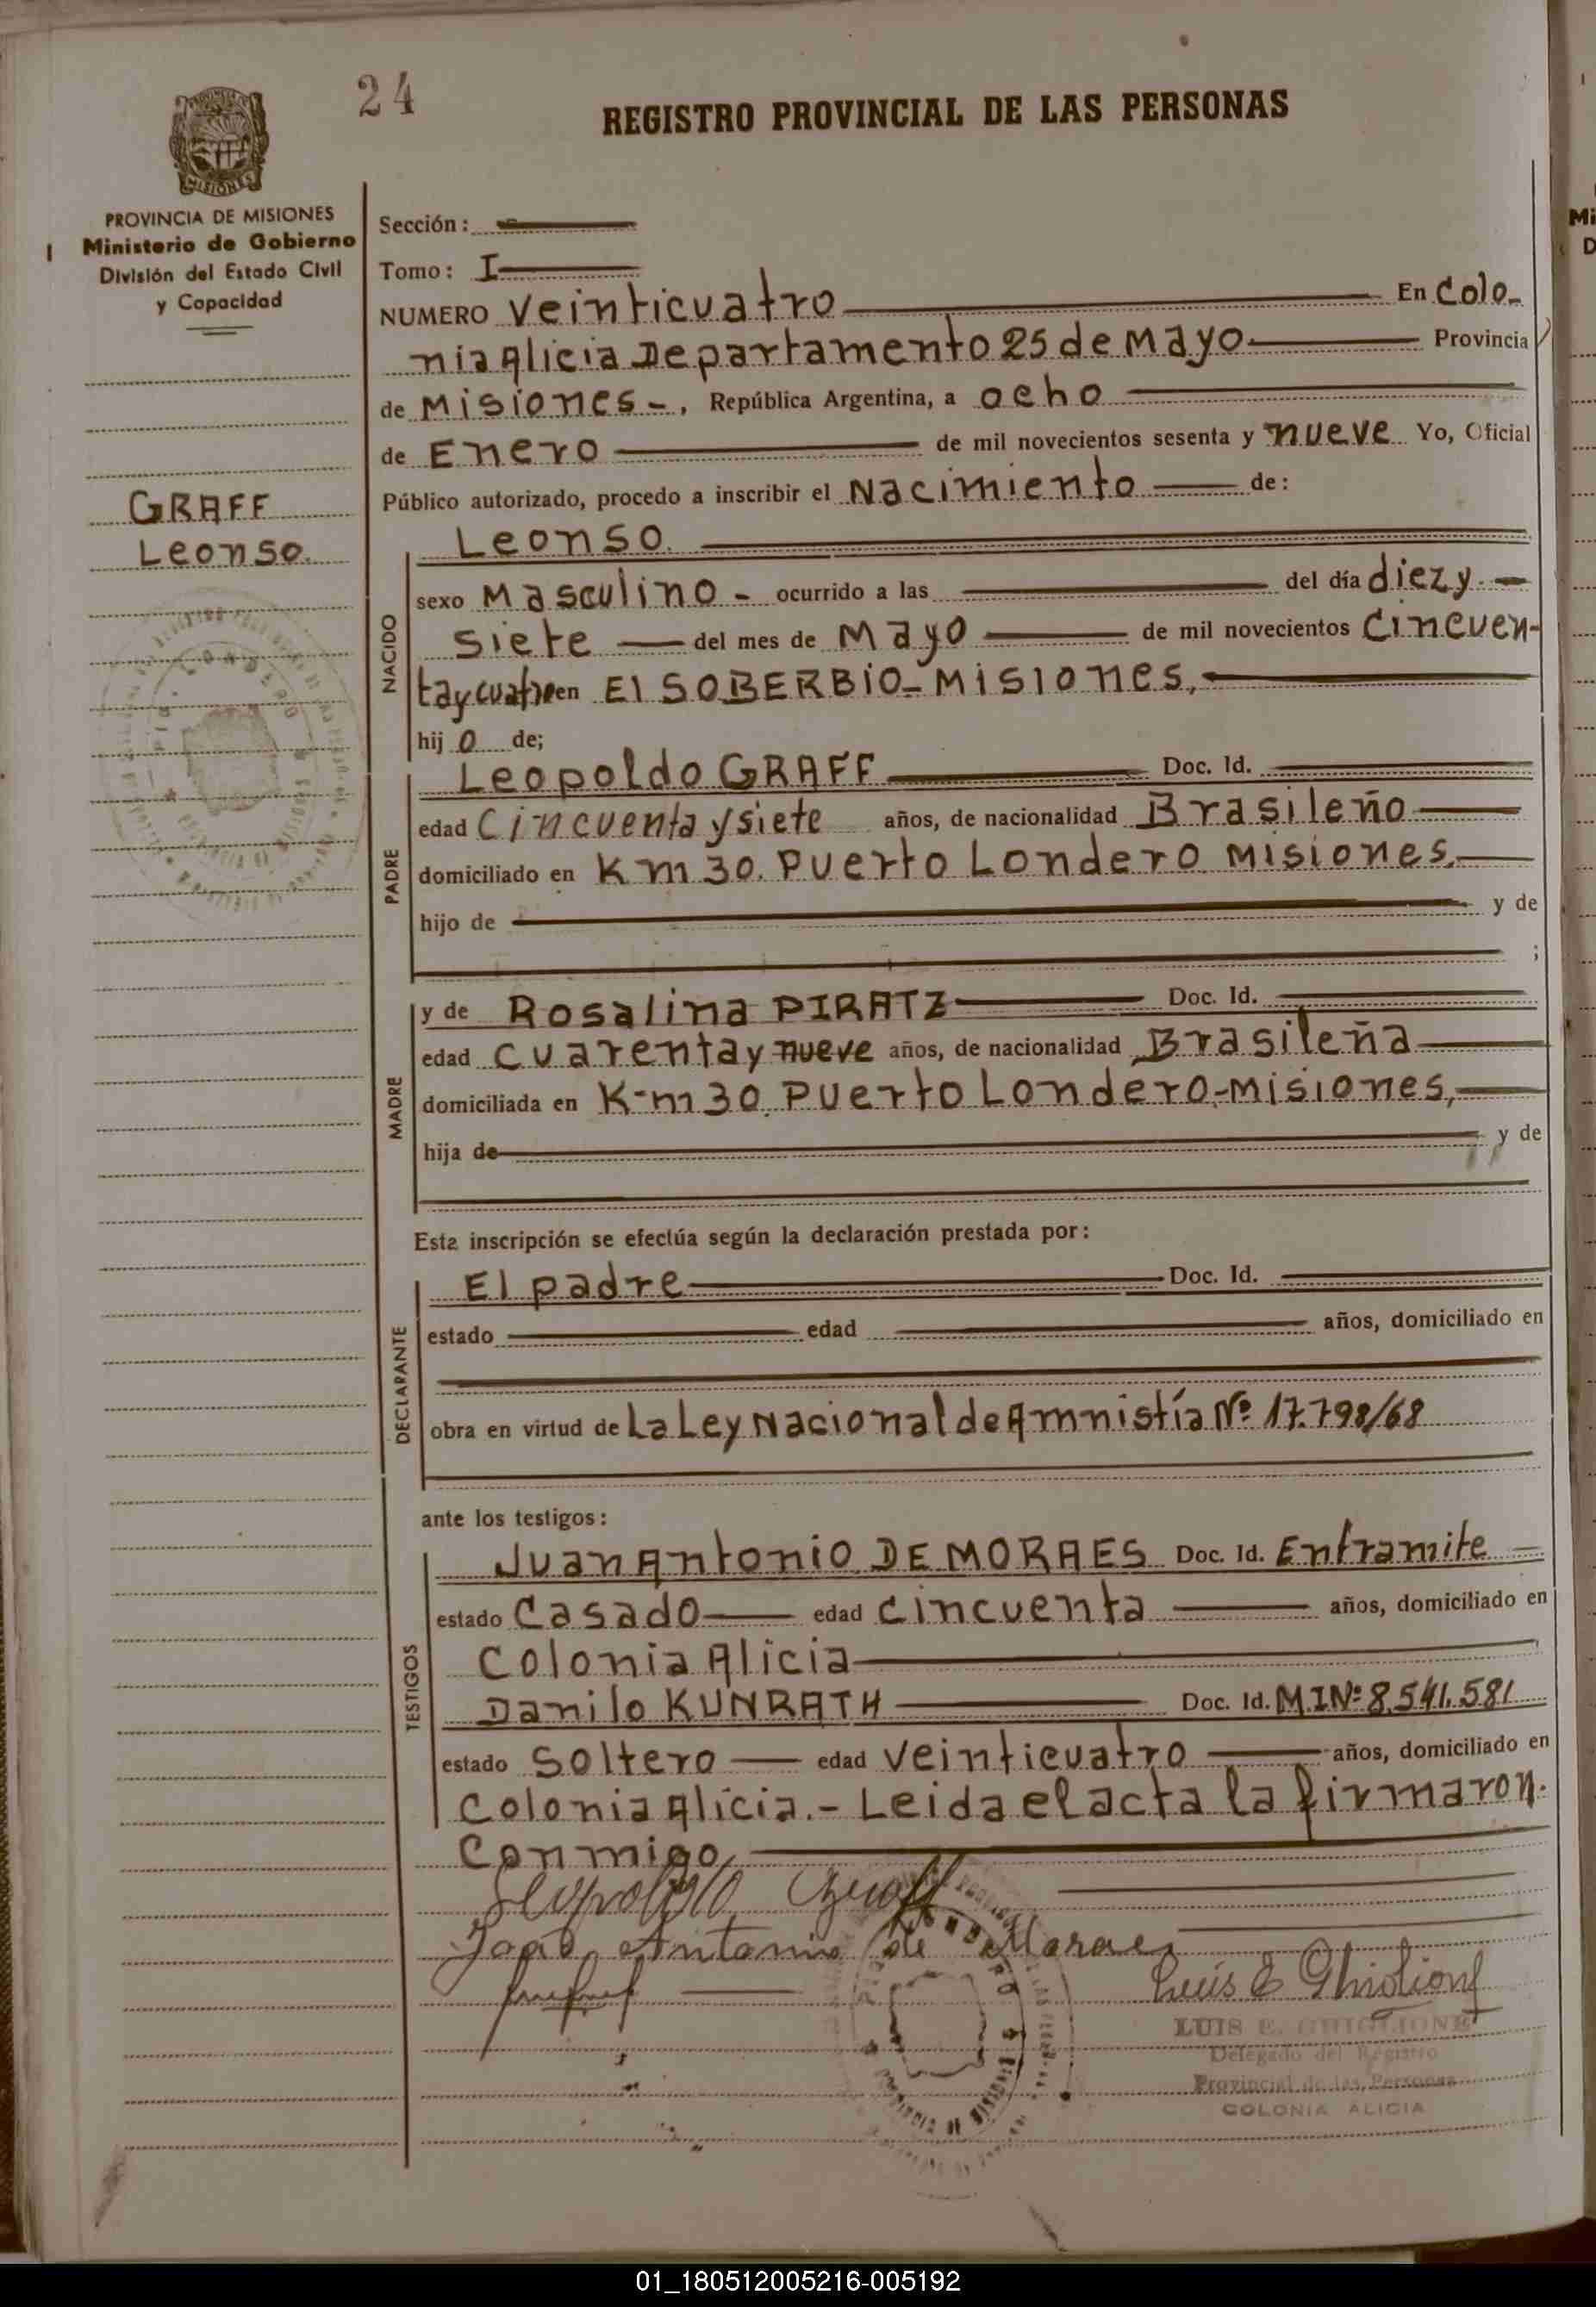 24
REGISTRO PROVINCIAL DE LAS PERSONAS
MISIONES
PROVINCIA DE MISIONES
Ministerio de Gobierno
División del Estado Civil
y Capacidad
GRAFF
Leonso.
Sección:
Tomo: I
NUMERO Veinticuatro En Colo-
nia Alicia Departamento 25 de Mayo Provincia
de Misiones-, República Argentina, a ocho
de Enero de mil novecientos sesenta y nueve Yo, Oficial
Público autorizado, procedo a inscribir el Nacimiento de:
Leonso.
NACIDO
sexo Masculino - ocurrido a las del día diez y
siete del mes de Mayo de mil novecientos Cincuen-
tay cuatro en El SOBERBIO-Misiones.
hij o de;
PADRE
Leopoldo GRAFF Doc. Id.
edad Cincuenta y siete años, de nacionalidad Brasileño
domiciliado en Km 30. Puerto Londero Misiones.
hijo de y de
;
MADRE
y de Rosalina PIRATZ Doc. Id.
edad cuarenta y nueve años, de nacionalidad Brasileña
domiciliada en Km 30. Puerto Londero-Misiones,
hija de y de
Esta inscripción se efectúa según la declaración prestada por:
DECLARANTE
El padre Doc. Id.
estado edad años, domiciliado en
obra en virtud de La Ley Nacional de Amnistía Nº 17.798/68
ante los testigos:
TESTIGOS
Juan Antonio DE MORAES Doc. Id. En tramite
estado Casado edad cincuenta años, domiciliado en
Colonia Alicia
Danilo KUNRATH Doc. Id. M.I.Nº 8.541.581
estado Soltero edad veinticuatro años, domiciliado en
Colonia Alicia.- Leida el acta la firmaron.
Conmigo,
Leopoldo Graff
João Antonio de Moraes
Luis E Ghiglione
LUIS E. GHIGLIONE
Delegado del Registro
Provincial de las Personas
COLONIA ALICIA
01_180512005216-005192